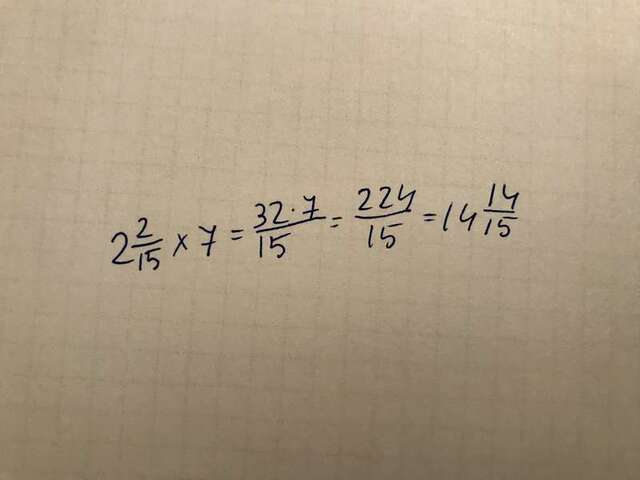 2 2/15 × 7 = 32·7/15 = 224/15 = 14 14/15